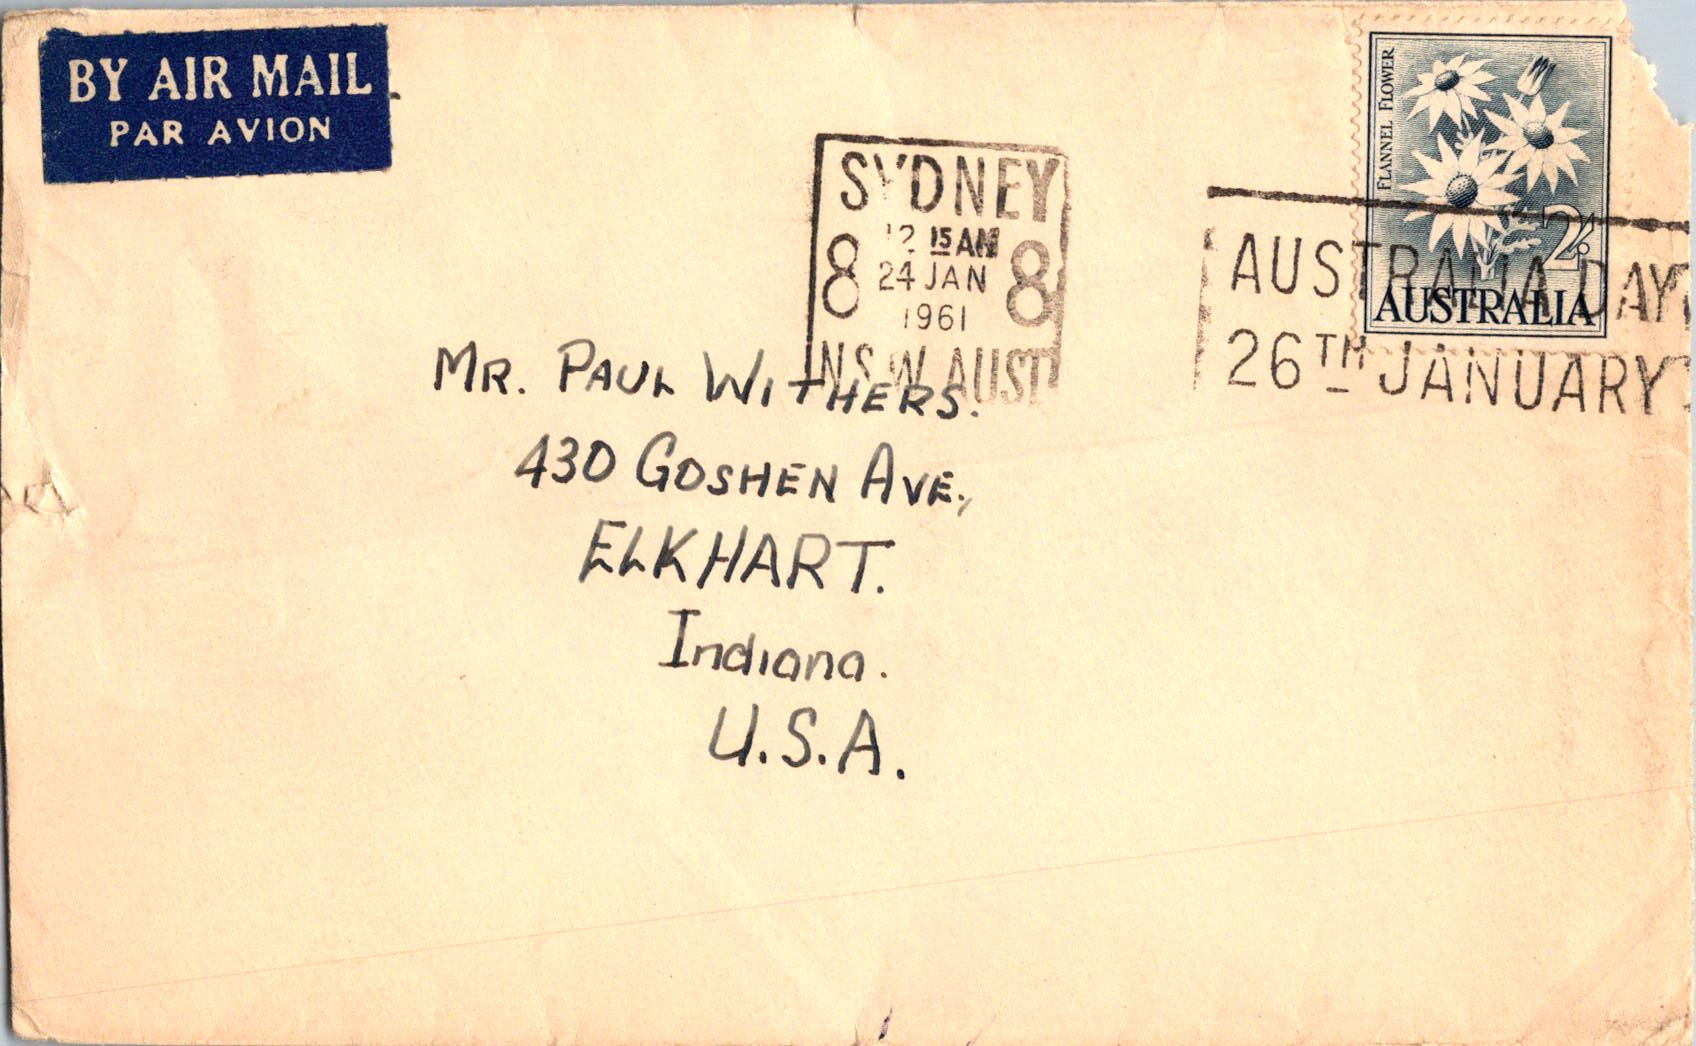 BY AIR MAIL
PAR AVION
SYDNEY
12 15 AM
8 24 JAN 8
1961
N.S.W. AUST
FLANNEL FLOWER
2/-
AUSTRALIA
AUSTRALIA DAY
26TH JANUARY
MR. PAUL WITHERS.
430 GOSHEN AVE,
ELKHART.
Indiana.
U.S.A.